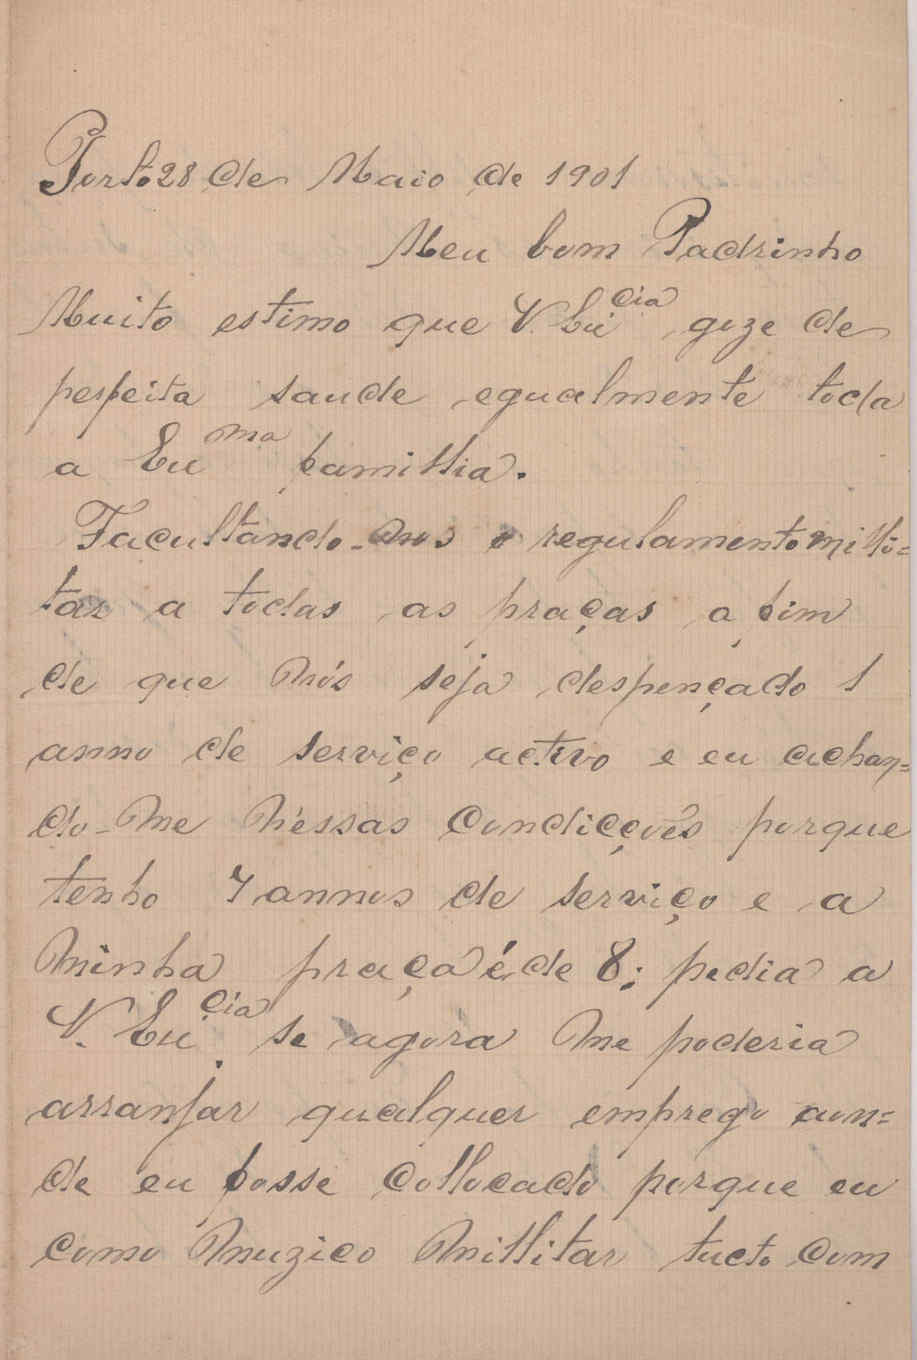 Porto 28 de Maio de 1901
Meu bom Padrinho
Muito estimo que V. Eu cia goze de
perfeita saude egualmente toda
a Eu ma familtia.
Facultando-nos o regulamento milti=
tar a todas as praças a fim
de que nós seja despençado 1
anno de serviço activo e eu achan=
do-me n'essas condicções porque
tenho 7 annos de serviço e a
minha praça é de 8; pedia a
V. Eu cia se agora me poderia
arranjar qualquer emprego aon=
de eu fosse collocado porque eu
como muzico millitar lucto com